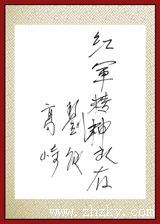 红军精神永存
刘
高崎
www.zhzky.com